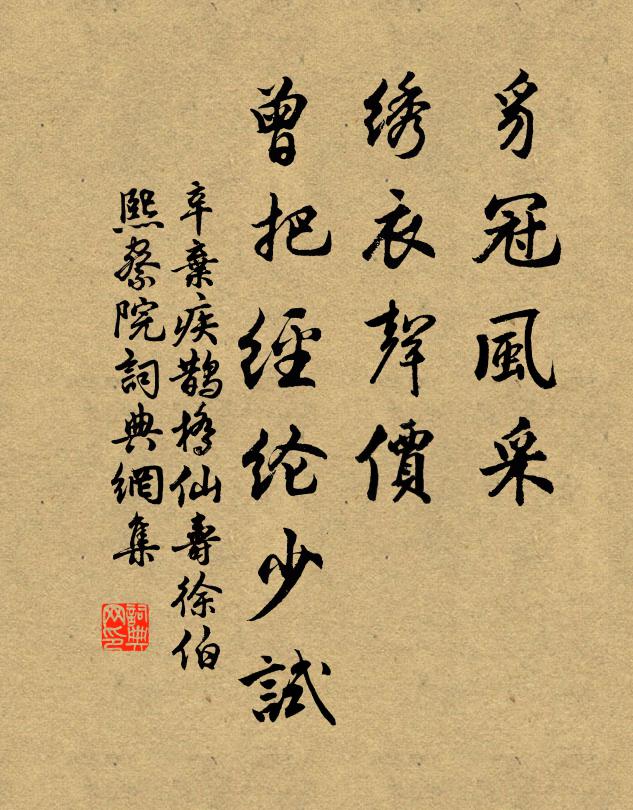 豸冠風采
绣衣聲價
曾把經纶少試
辛棄疾鵲橋仙壽徐伯
熙察院詞典網集
詞典网印